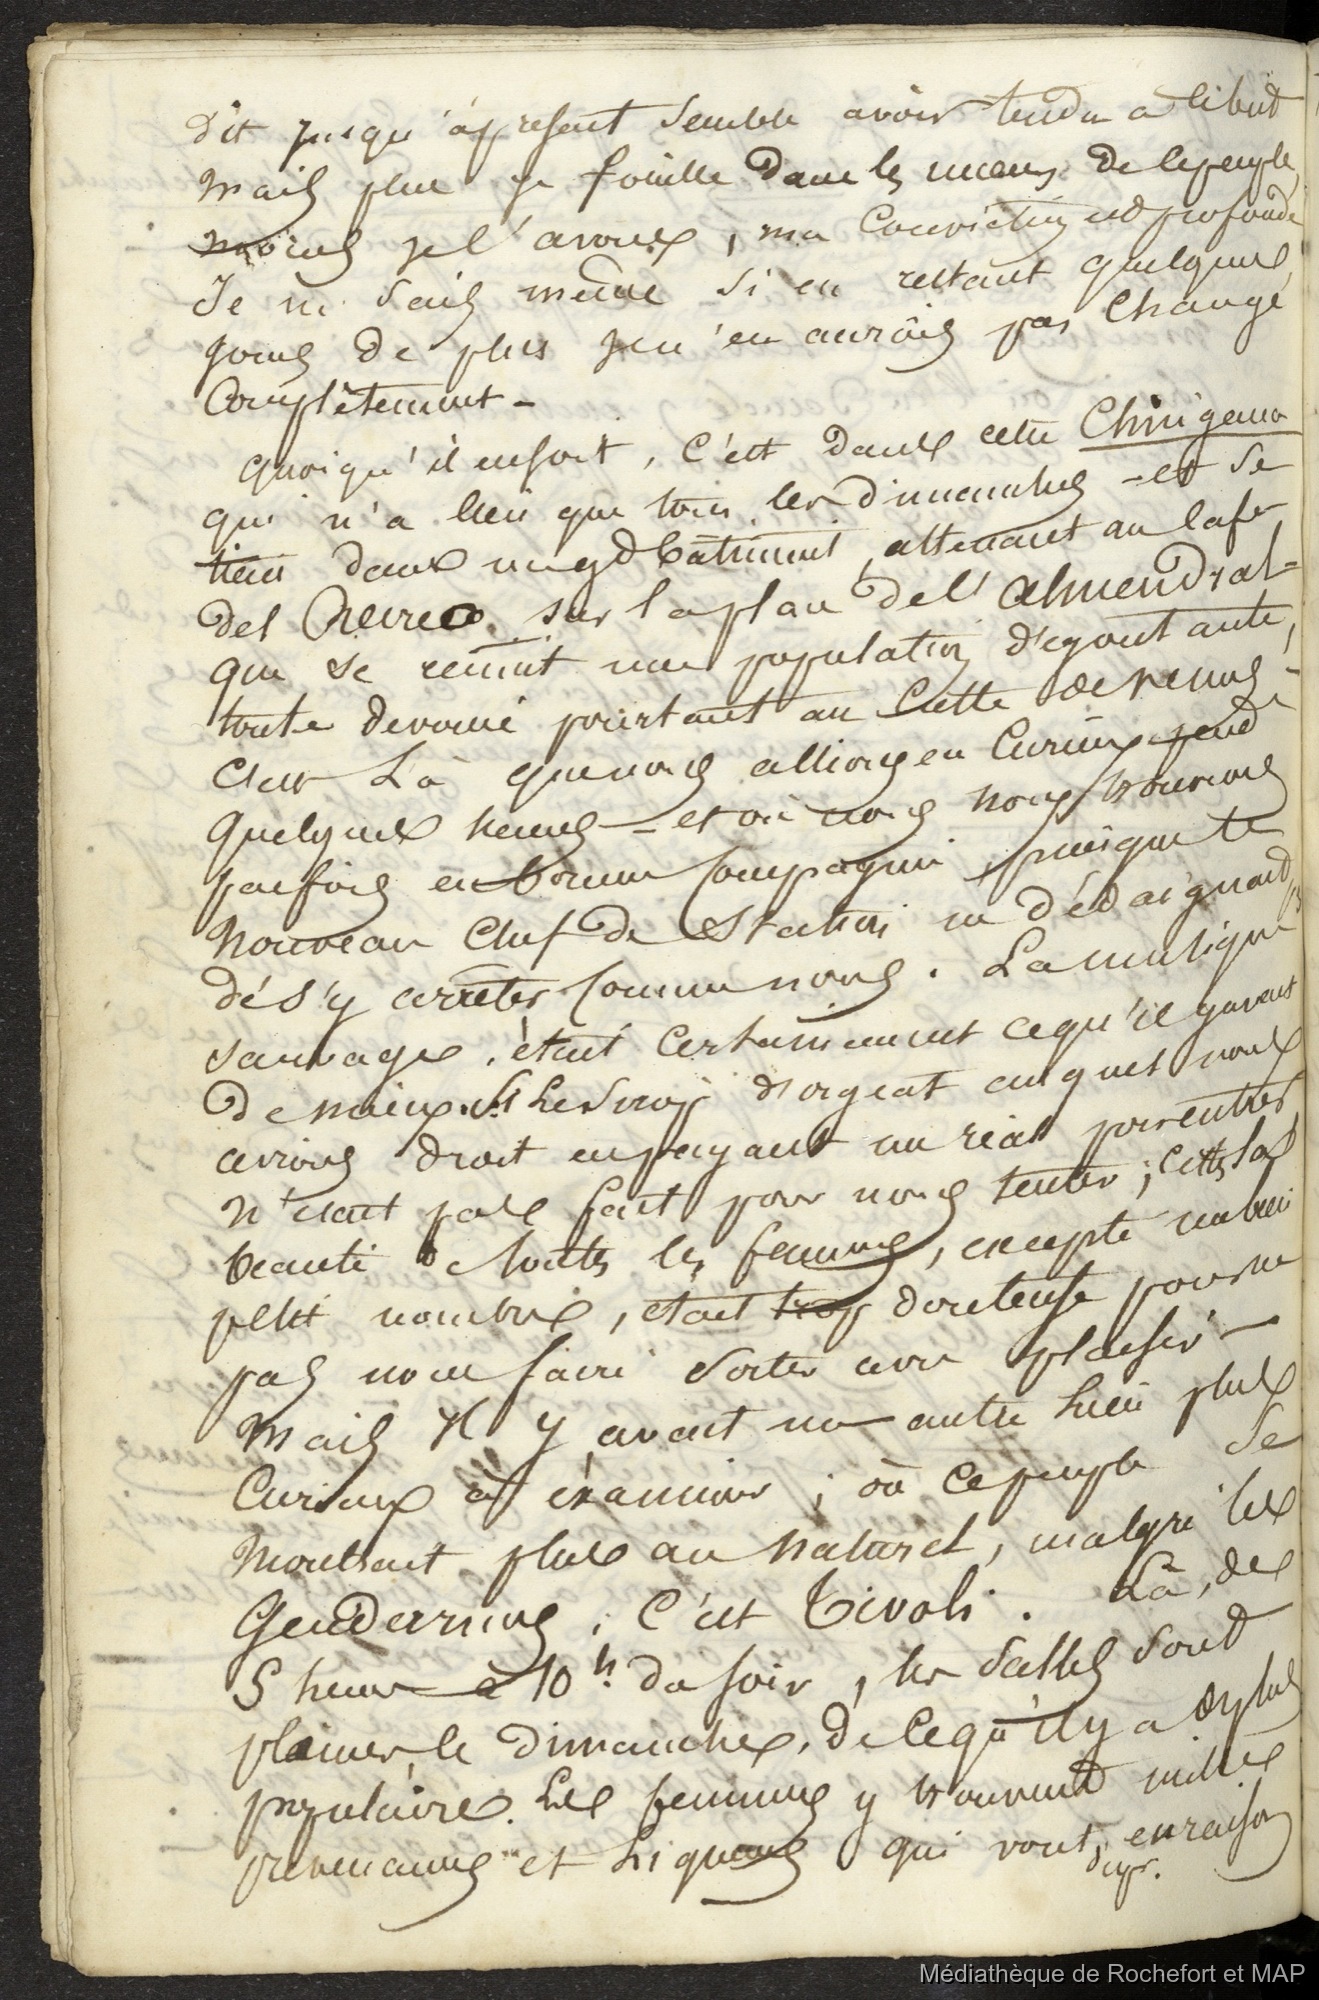 dit jusqu'àpresent semble avoir tendu a ce but
mais plus je fouille dans les mœurs de le peuple
moins je l'avoue, ma conviction est profonde
Je ne sais même si en restant quelques
jours de plus je n'en aurais pas changé
complêtement -
quoiqu'il en soit, c'est dans cette Chinigana
qui n'a lieu que tous les dimanches - et se
tien dans un gd bâtiment, attenant au cafe
del Recreo, sur la plan de l'Almendral -
que se reunit une population d'egoutante,
toute devouée pourtant au culte de venus -
C'est Là que nous allions en curieux pend
quelques heures - et où nous nous trouvions
parfois en bonne compagnie puisque le
nouveau chef de Station ne dédaignait pas
dés'y arrêter comme nous. La musique
sauvage, était certainement ce qu'il y avait
de mieux. Le sirop d'orgeat auquel nous
avions droit en payant un real pour entrer
n'etait pas fait pour nous tenter; et la
beauté de toutes les femmes, excepté un bien
petit nombre, était trop douteuse pour ne
pas nous faire sortir avec plaisir -
Mais Il y avait un autre lieu plus
curieux à éxaminer; où ce peuple se
montrait plus au naturel, malgré les
Gendarmes; C'est Tivoli. Là, de
5 heures à 10h. du soir, les salles sont
pleines, le dimanche, de ce qu'il y a de plus
populaire. Les femmes y trouvent mille
prévenances et liqueurs qui vont, en raison